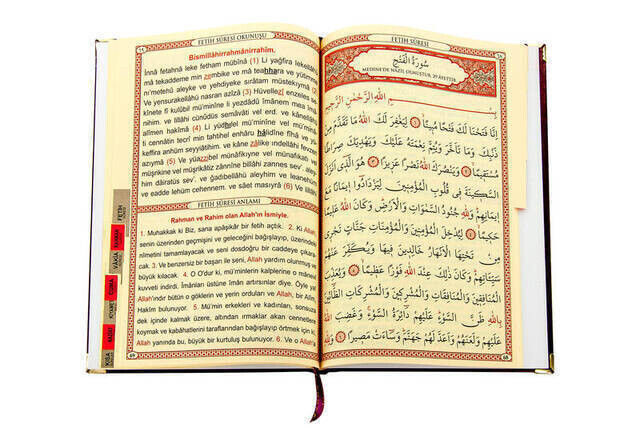 FETİH SÛRESİ OKUNUŞU
Bismillâhirrahmânirrahîm.
İnnâ fetahnâ leke fethan mübînâ (1) Li yağfira lekellâhü
mâ tekaddeme min zembike ve mâ teahhara ve yütimme
ni'metehû aleyke ve yehdiyeke sırâtam müstekıymâ (2)
Ve yensurakellâhü nasran azîzâ (3) Hüvellezî enzeles se
kînete fî kulûbil mü'minîne li yezdâdû îmânem mea îmâ
nihim. ve lillâhi cünûdüs semâvâti vel erd. ve kânellâhü
alîmen hakîmâ (4) Li yüdhilel mü'minîne vel mü'minâ
ti cennâtin tecrî min tahtihel enhâru hâlidîne fîhâ ve yü
keffira anhüm seyyiâtihim. ve kâne zâlike indellâhi fevzen
azıymâ (5) Ve yüazzibel münâfikıyne vel münâfikâti vel
müşrikîne vel müşrikâtiz zânnîne billâhi zannes sev'. aley
him dâiratüs sev'. ve ğadıbellâhü aleyhim ve leanehüm
ve eadde lehüm cehennem. ve sâet masıyrâ (6) Ve lillâhi
FETİH SÛRESİ ANLAMI
Rahman ve Rahim olan Allah'ın İsmiyle.
1. Muhakkak ki Biz, sana apâşikâr bir fetih açtık. 2. Ki Allah,
senin üzerinden geçmişini ve geleceğini bağışlayıp, üzerindeki
nîmetini tamamlayacak ve seni dosdoğru bir caddeye çıkara
cak. 3. Ve benzersiz bir başarı ile seni, Allah yardım olunmuş ve
büyük kılacak. 4. O O'dur ki, mü'minlerin kalplerine o mânevî
kuvveti indirdi. Îmânları üstüne îmân artırsınlar diye. Öyle ya!
Allah'ındır bütün o göklerin ve yerin orduları ve Allah, bir Alîm,
Hakîm bulunuyor. 5. Mü'min erkekleri ve kadınları, sonsuza
dek içinde kalmak üzere, altından ırmaklar akan cennetlere
koymak ve kabahatlerini taraflarından bağışlayıp örtmek için ki,
Allah yanında bu, büyük bir kurtuluş bulunuyor. 6. Ve o Allah'a
69
FETİH
VÂKIA
AMME
KISA
FETİH SÛRESİ
سُورَةُ الْفَتْحِ
MEDİNE'DE NAZİL OLMUŞTUR, 29 AYETTİR.
بِسْمِ اللّٰهِ الرَّحْمٰنِ الرَّحِيمِ
اِنَّا فَتَحْنَا لَكَ فَتْحًا مُبِينًا ﴿١﴾ لِيَغْفِرَ لَكَ اللّٰهُ مَا تَقَدَّمَ مِنْ
ذَنْبِكَ وَمَا تَاَخَّرَ وَيُتِمَّ نِعْمَتَهُ عَلَيْكَ وَيَهْدِيَكَ صِرَاطًا
مُسْتَقِيمًا ﴿٢﴾ وَيَنْصُرَكَ اللّٰهُ نَصْرًا عَزِيزًا ﴿٣﴾ هُوَ الَّذِى اَنْزَلَ
السَّكِينَةَ فِى قُلُوبِ الْمُؤْمِنِينَ لِيَزْدَادُوا اِيمَانًا مَعَ
اِيمَانِهِمْ وَلِلّٰهِ جُنُودُ السَّمٰوَاتِ وَالْاَرْضِ وَكَانَ اللّٰهُ عَلِيمًا
حَكِيمًا ﴿٤﴾ لِيُدْخِلَ الْمُؤْمِنِينَ وَالْمُؤْمِنَاتِ جَنَّاتٍ تَجْرِى
مِنْ تَحْتِهَا الْاَنْهَارُ خَالِدِينَ فِيهَا وَيُكَفِّرَ عَنْهُمْ
سَيِّئَاتِهِمْ وَكَانَ ذٰلِكَ عِنْدَ اللّٰهِ فَوْزًا عَظِيمًا ﴿٥﴾ وَيُعَذِّبَ
الْمُنَافِقِينَ وَالْمُنَافِقَاتِ وَالْمُشْرِكِينَ وَالْمُشْرِكَاتِ الظَّانِّينَ
بِاللّٰهِ ظَنَّ السَّوْءِ عَلَيْهِمْ دَائِرَةُ السَّوْءِ وَغَضِبَ اللّٰهُ
عَلَيْهِمْ وَلَعَنَهُمْ وَاَعَدَّ لَهُمْ جَهَنَّمَ وَسَاءَتْ مَصِيرًا ﴿٦﴾ وَلِلّٰهِ
68